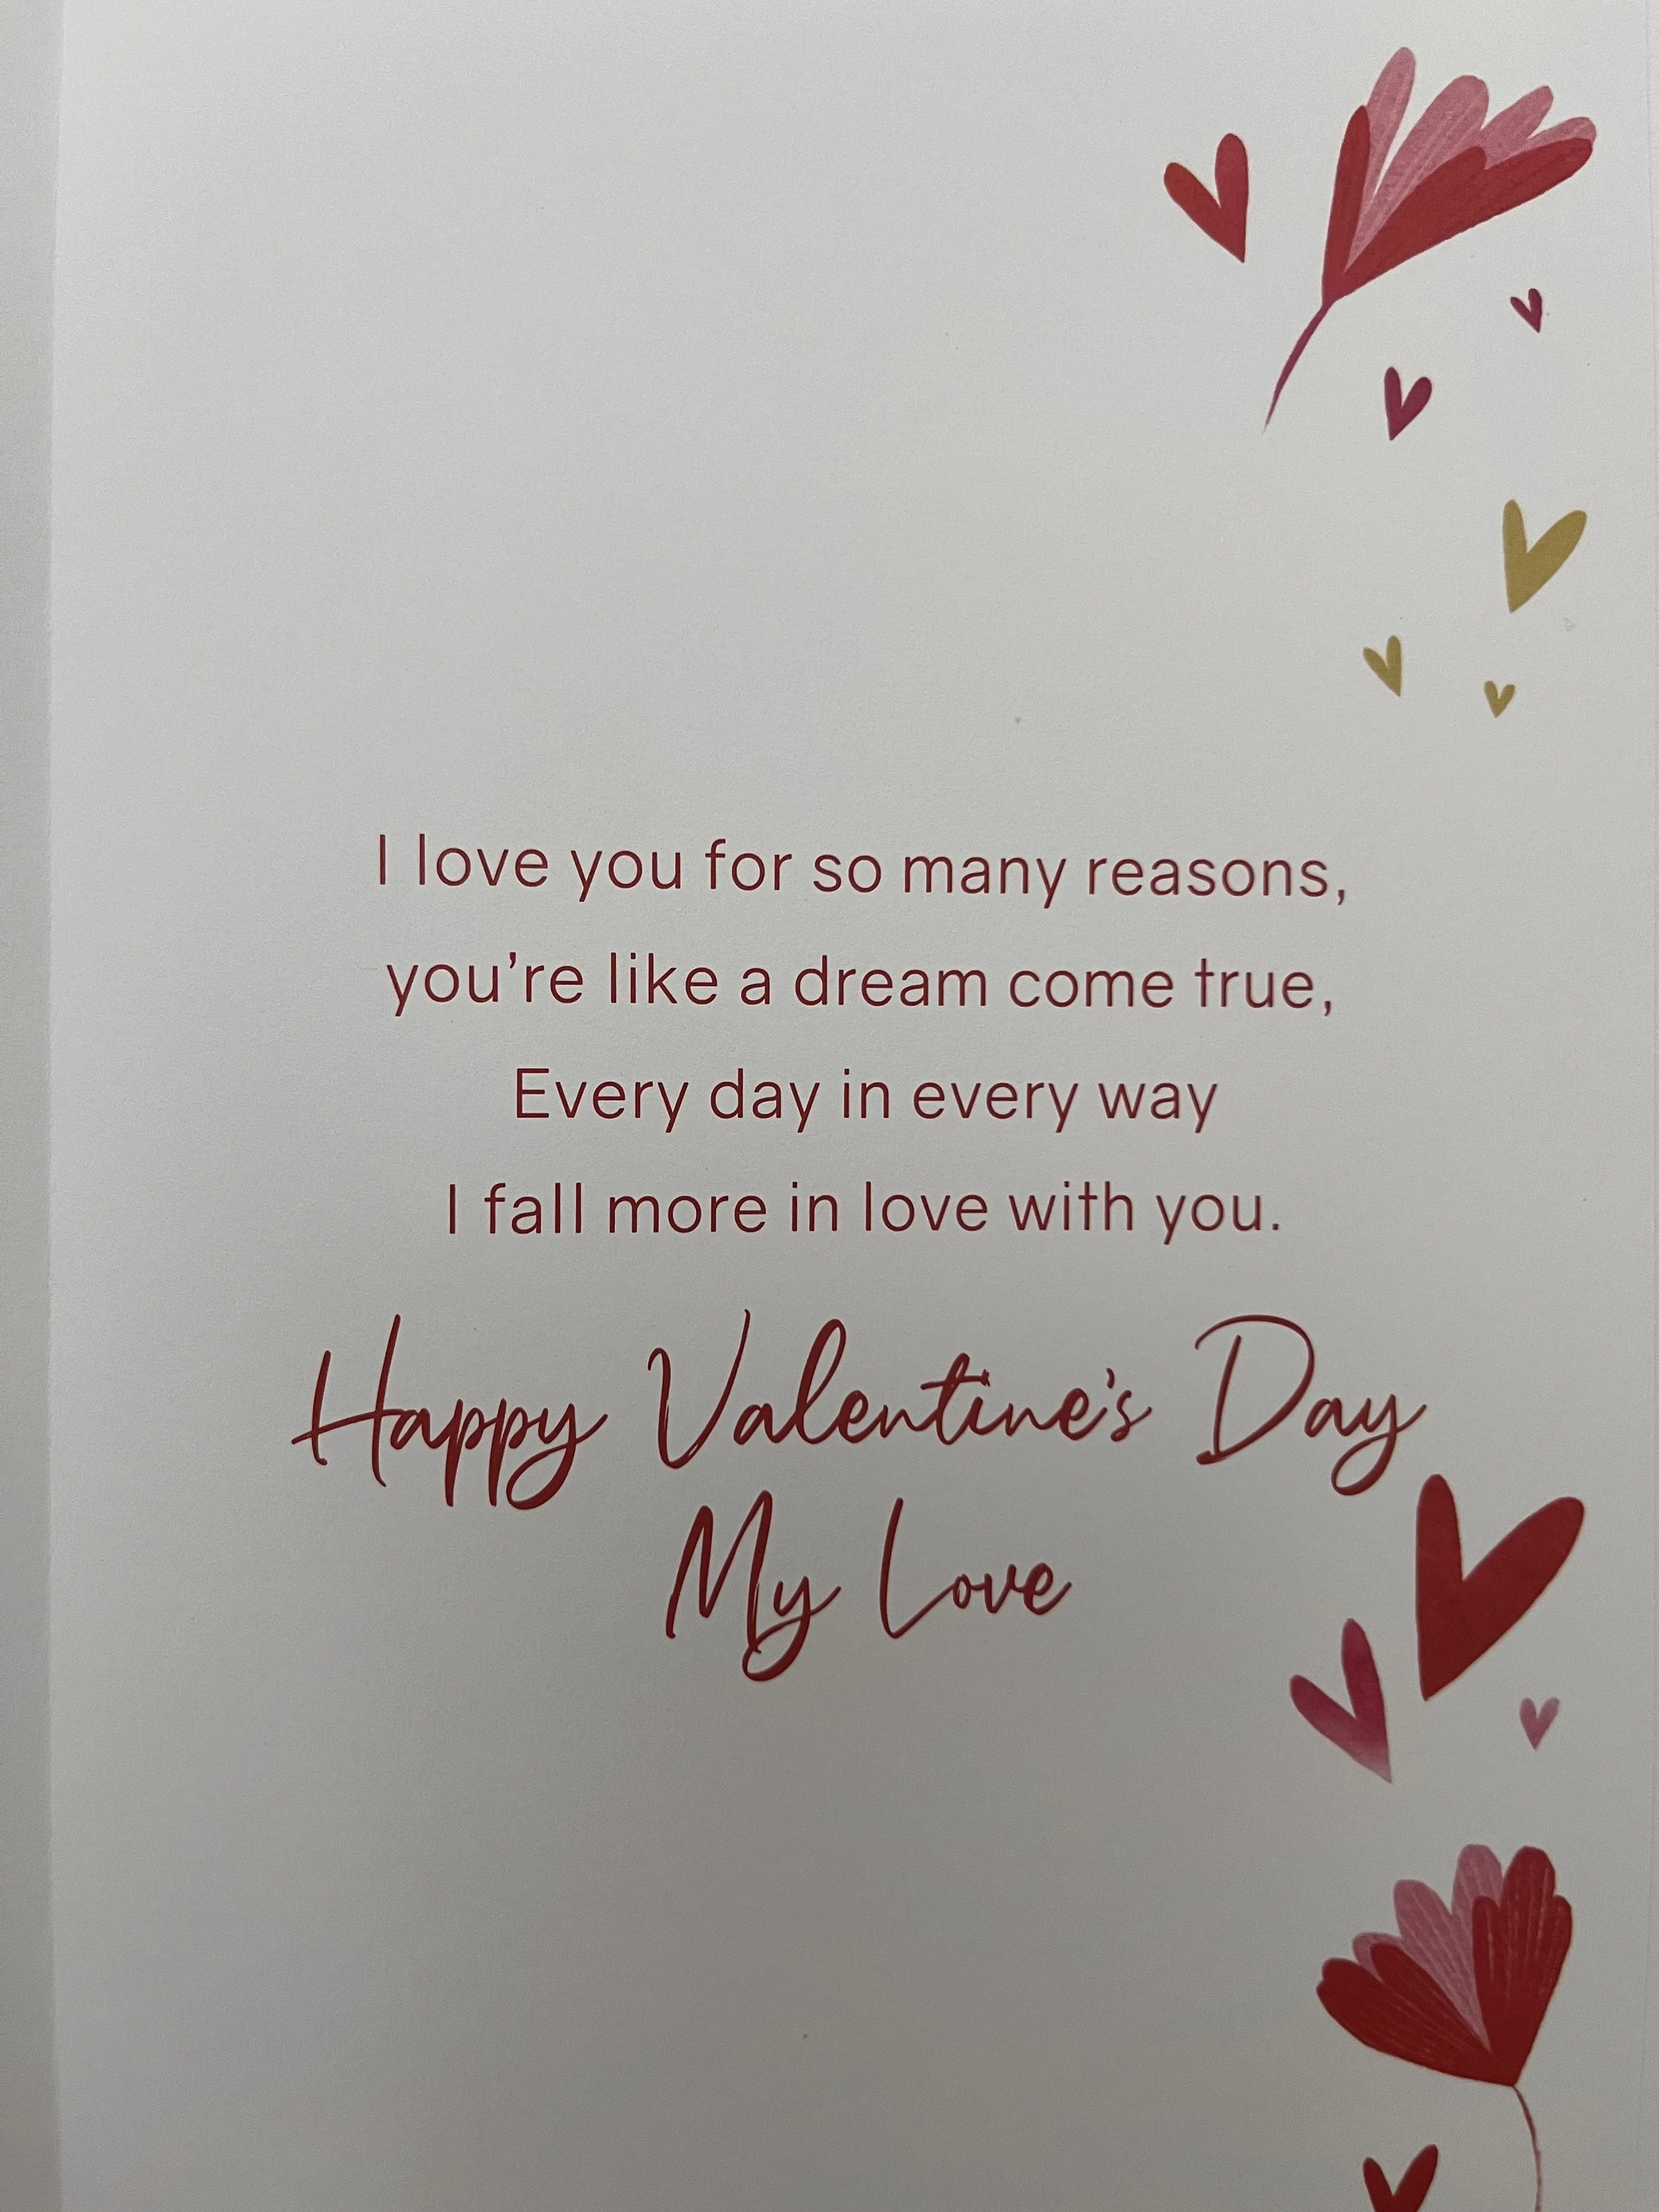 I love you for so many reasons,
you’re like a dream come true,
Every day in every way
I fall more in love with you.
Happy Valentine’s Day
My Love